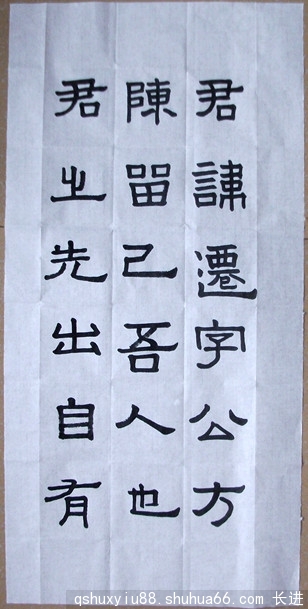 君諱遷字公方
陳留己吾人也
君之先出自有
qshuxyiu88.shuhua66.com 长进